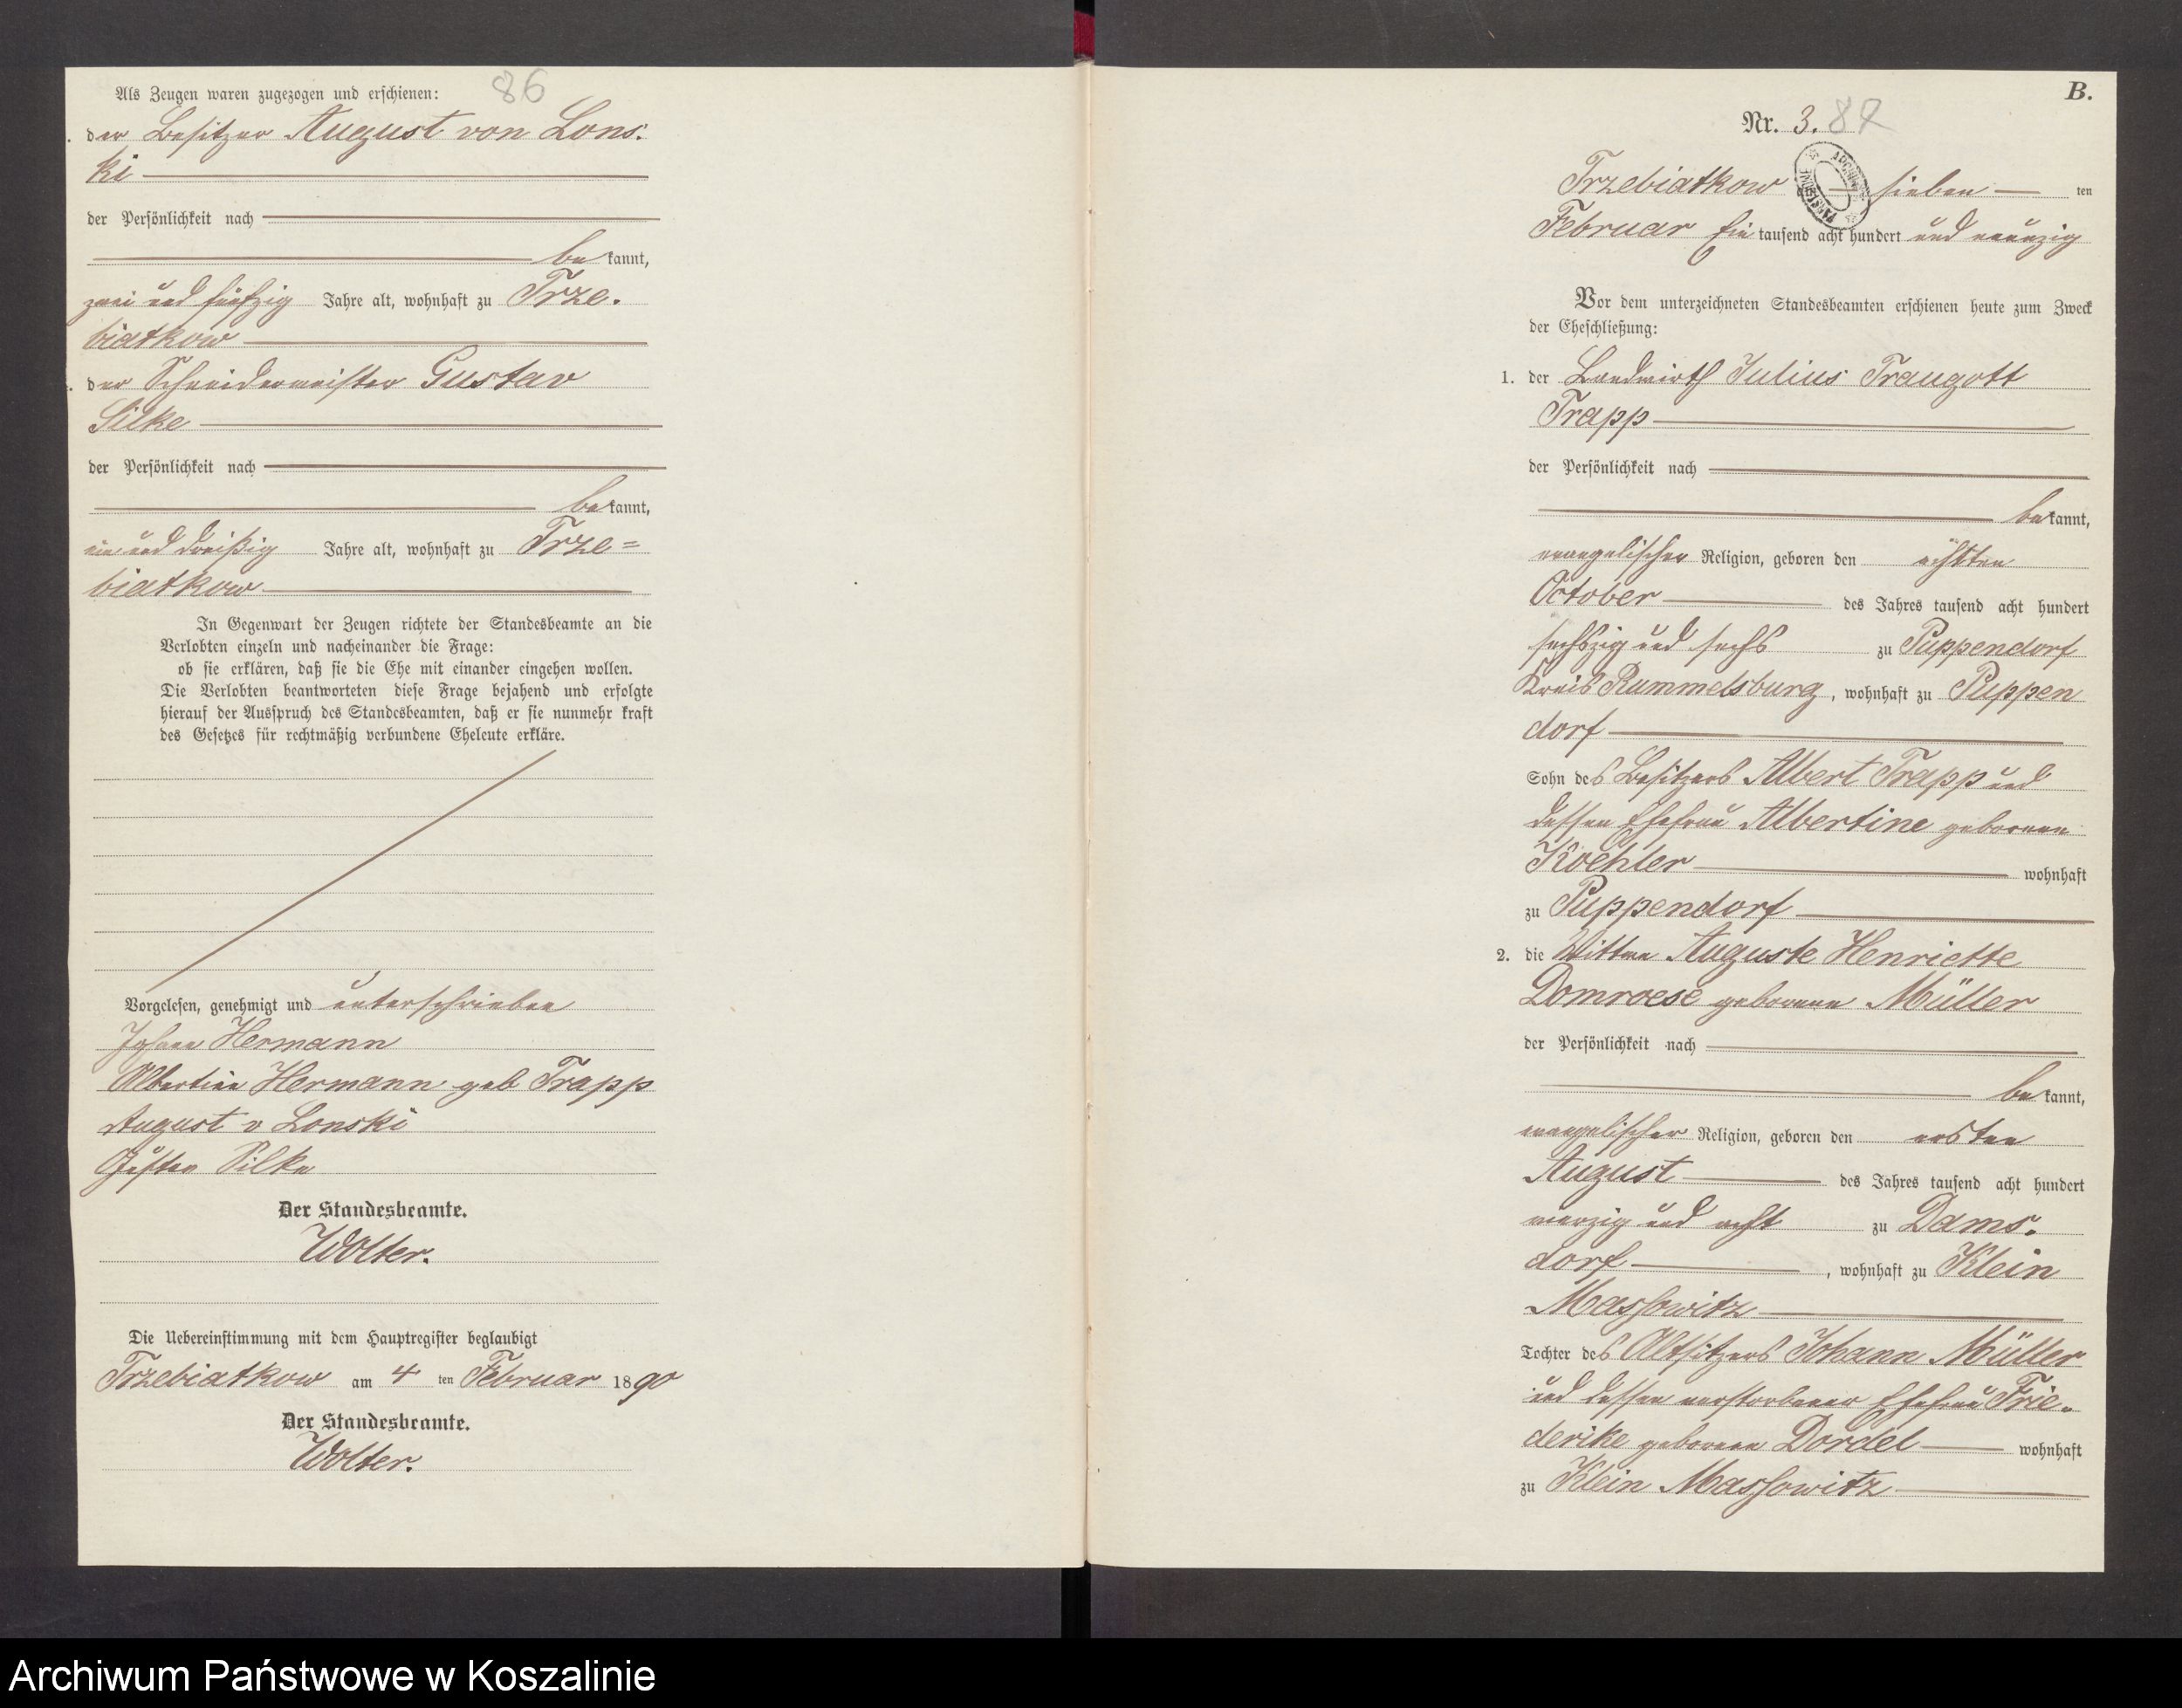 86
Als Zeugen waren zugezogen und erschienen:
der Besitzer August von Lons:
ki
der Persönlichkeit nach
bekannt,
zwei und fünfzig Jahre alt, wohnhaft zu Trze.
biatkow
der Schneidermeister Gustav
Silke
der Persönlichkeit nach
bekannt,
ein und dreißig Jahre alt, wohnhaft zu Trze=
biatkow
In Gegenwart der Zeugen richtete der Standesbeamte an die
Verlobten einzeln und nacheinander die Frage:
ob sie erklären, daß sie die Ehe mit einander eingehen wollen.
Die Verlobten beantworteten diese Frage bejahend und erfolgte
hierauf der Ausspruch des Standesbeamten, daß er sie nunmehr kraft
des Gesetzes für rechtmäßig verbundene Eheleute erkläre.
Vorgelesen, genehmigt und unterschrieben
Johann Hermann
Albertine Hermann geb Trapp
August v Lonski
Gustav Silke
Der Standesbeamte.
Wolter.
Die Uebereinstimmung mit dem Hauptregister beglaubigt
Trzebiatkow am 4 ten Februar 1890
Der Standesbeamte.
Wolter.
B.
Nr. 3. 87
Trzebiatkow am sieben ten
Februar Ein tausend acht hundert und neunzig
Vor dem unterzeichneten Standesbeamten erschienen heute zum Zweck
der Eheschließung:
1. der Landwirth Julius Traugott
Trapp
der Persönlichkeit nach
bekannt,
evangelischer Religion, geboren den achten
October des Jahres tausend acht hundert
sechszig und sechs zu Puppendorf
Kreis Rummelsburg, wohnhaft zu Puppen
dorf
Sohn des Besitzers Albert Trapp und
dessen Ehefrau Albertine geborenen
Koehler wohnhaft
zu Puppendorf
2. die Wittwe Auguste Henriette
Domroese geborene Müller
der Persönlichkeit nach
bekannt,
evangelischer Religion, geboren den ersten
August des Jahres tausend acht hundert
vierzig und acht zu Dams.
dorf, wohnhaft zu Klein
Massowitz
Tochter des Altsitzers Johann Müller
und dessen verstorbener Ehefrau Frie=
derike geborene Dordel wohnhaft
zu Klein Massowitz
Archiwum Państwowe w Koszalinie